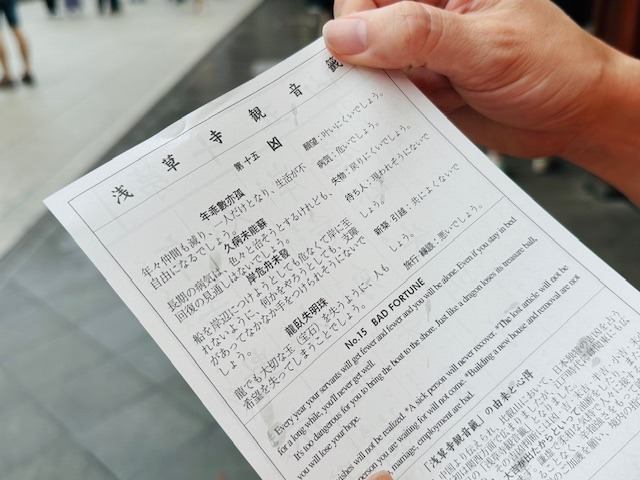 浅草寺観音籤
第十五 凶
年乖數亦孤
年々仲間も減り、一人だけとなり、生活が不
自由になるでしょう。
久病未能蘇
長期の病気は、色々と治そうとするけれども、
回復の見通しはないでしょう。
岸危舟未發
船を岸辺につけようとしても危なくて岸に至
れないように、何かをやろうとしても、支障
があってなかなか手をつけられそうにないで
しょう。
龍臥失明珠
龍でも大切な玉(宝石)を失うように、人も
希望を失ってしまうことでしょう。
願望:叶いにくいでしょう。
病気:危いでしょう。
失物:戻りにくいでしょう。
待ち人:現われそうにないで
しょう。
新築・引越:共によくないで
しょう。
旅行・縁談:悪いでしょう。
No.15 BAD FORTUNE
Every year your servants will get fewer and fewer and you will be alone. Even if you stay in bed
for a long while, you'll never get well.
It's too dangerous for you to bring the boat to the shore. Just like a dragon loses its treasure ball,
you will lose your hope.
wishes will not be realized. *A sick person will never recover. *The lost article will not be
person you are waiting for will not come. *Building a new house and removal are not
marriage, employment are bad.
「浅草寺観音籤」の由来と心得